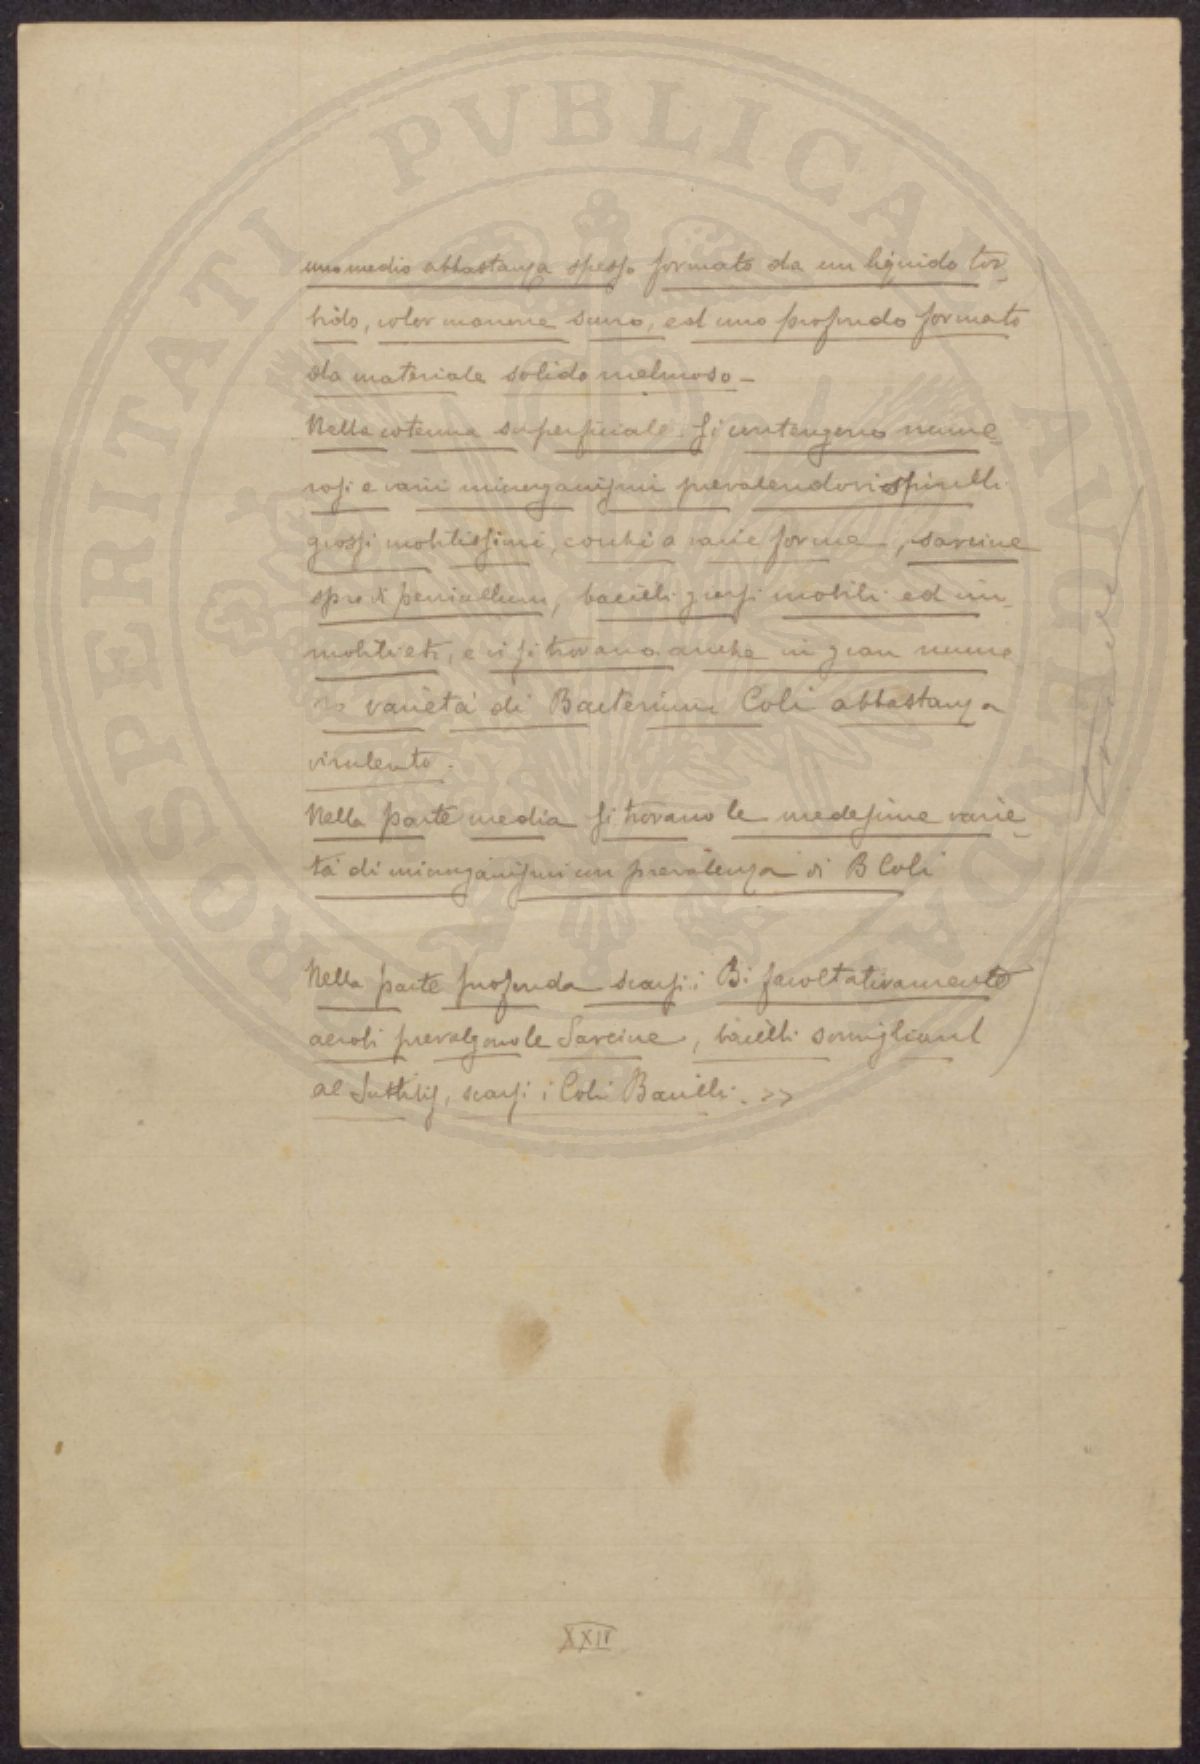 PROSPERITATI PVBLICAE AVGENDAE
uno medio abbastanza spesso formato da un liquido tor-
bido, color marrone scuro, ed uno profondo formato
da materiale solido melmoso –
Nella cotenna superficiale si contengono nume-
rosi e varii microrganismi prevalendovi spirilli
grossi mobilissimi, cocchi a varie forme, sarcine
spore di penicillum, bacilli grossi mobili ed im-
mobili etc, e vi si trovano anche in gran nume
ro varietà di Bacterium Coli abbastanza
virulento.
Nella parte media si trovano le medesime varie-
tà di microrganismi con prevalenza di B Coli
Nella parte profonda scarsi i Bi facoltativamente
aerobi prevalgono le Sarcine, bacilli somiglianti
al Subtilis, scarsi i Coli Bacilli. >>
XXIV